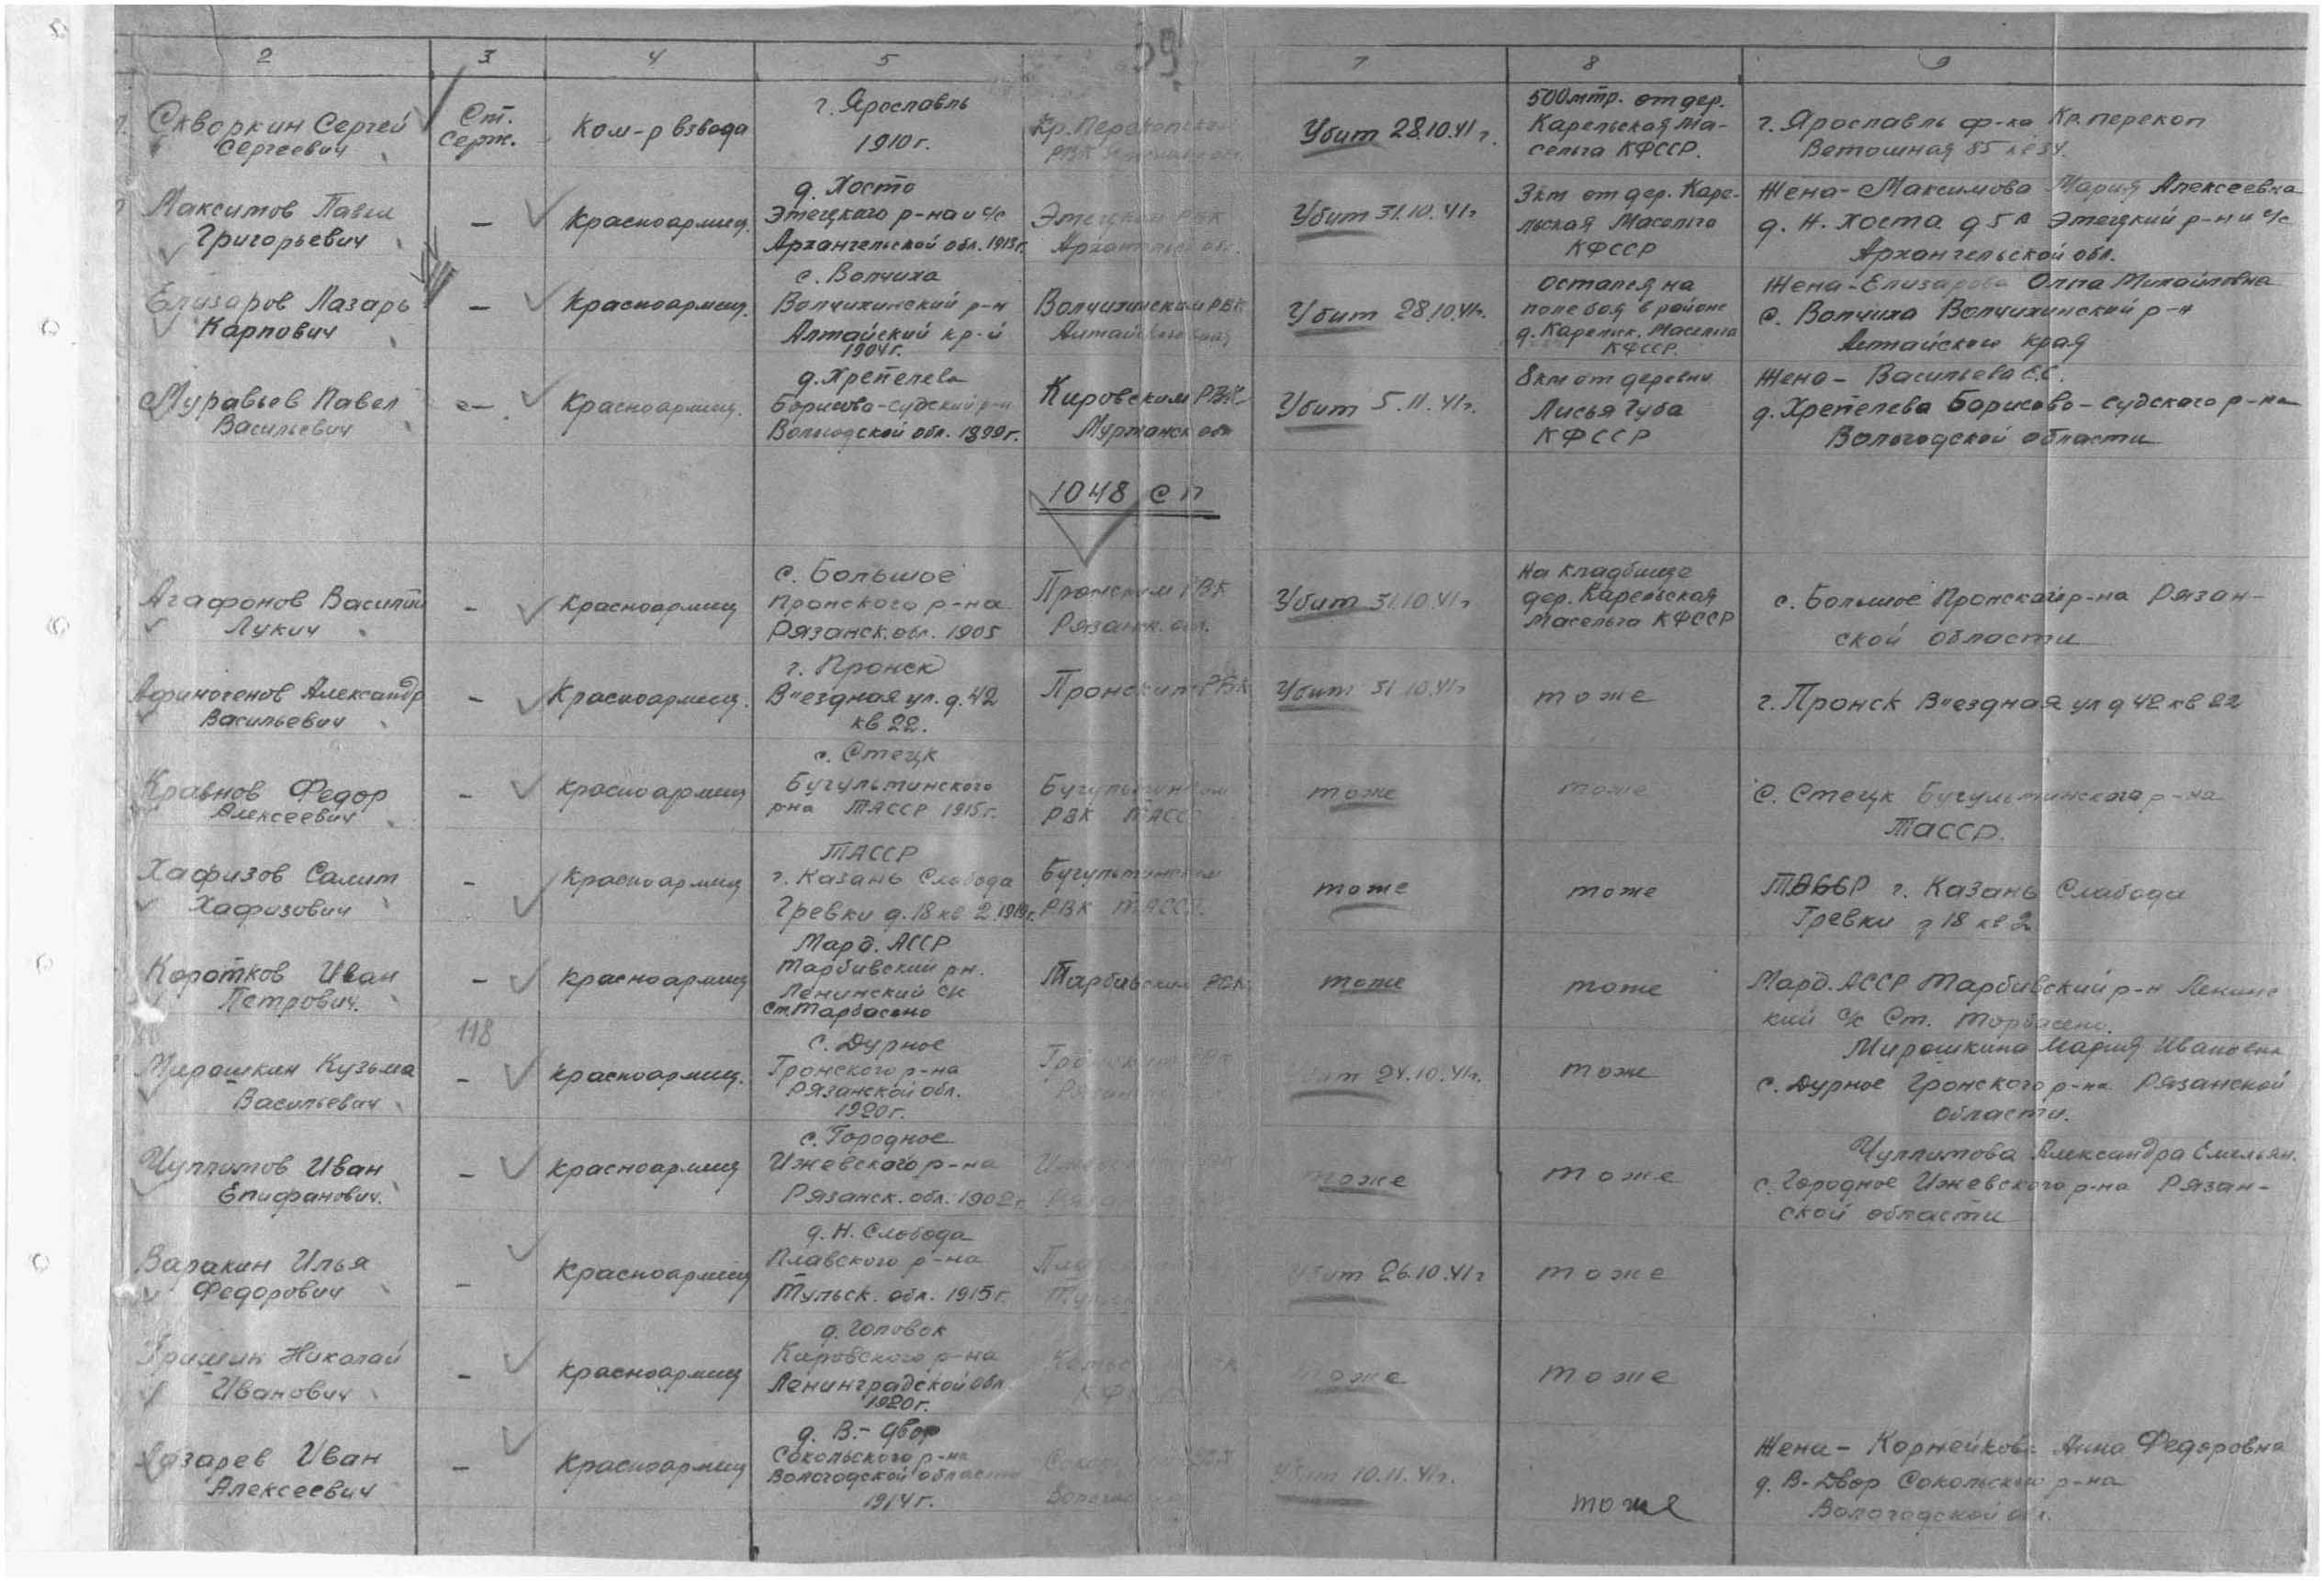 39
2 3 4 5 7 8 9
Скворкин Сергей
Сергеевич
Ст.
серж.
Ком-р взвода
г. Ярославль
1910 г.
Кр. Перекопский
РВК
Убит 28.10.41 г.
500 мтр. от дер.
Карельская Ма-
сельга КФССР.
г. Ярославль ф-ка Кр. перекоп
Ветошная 85
Максимов Павел
Григорьевич
—
Красноармеец.
д. Хосто
Этецкого р-на и с/с
Архангельской обл. 1913 г.
Этецким РВК
Архангельск обл.
Убит 31.10.41 г
3 км от дер. Каре-
льская Масельга
КФССР
Жена - Максимова Мария Алексеевна
д. Н. Хоста д 5 а Этецкий р-н и с/с
Архангельской обл.
Елизаров Лазарь
Карпович
—
Красноармеец.
с. Волчиха
Волчихинский р-н
Алтайский кр-й
1904 г.
Волчихинским РВК
Алтайского края
Убит 28.10.41 г.
Остался на
поле боя в районе
д. Карельск. Масельга
КФССР.
Жена - Елизарова Олпа Михайловна
с. Волчиха Волчихинский р-н
Алтайского края
Муравьев Павел
Васильевич
—
Красноармеец.
д. Хрепелева
Борисово-Судский р-н
Вологодской обл. 1899 г.
Кировским РВК
Мурманск обл
Убит 5.11.41 г.
8 км от деревни
Лисья Губа
КФССР
Жена - Васильева Е.С.
д. Хрепелева Борисово-Судского р-на
Вологодской области
1048 СП
Агафонов Василий
Лукич
-
Красноармеец
с. Большое
Пронского р-на
Рязанск. обл. 1905
Пронским РВК
Рязанск. обл.
Убит 31.10.41 г
На кладбище
дер. Карельская
Масельга КФССР
с. Большое Пронского р-на Рязан-
ской области
Афиногенов Александр
Васильевич
-
Красноармеец.
г. Пронск
Въездная ул. д. 42
кв 22.
Пронским РВК
Убит 31.10.41 г
тоже
г. Пронск Въездная ул д 42 кв 22
Кравнов Федор
Алексеевич
-
Красноармеец
с. Стецк
Бугульминского
р-на ТАССР 1915 г.
Бугульминским
РВК ТАССР
тоже
тоже
с. Стецк Бугульминского р-на
ТАССР.
Хафизов Салим
Хафизович
-
Красноармеец
ТАССР
г. Казань Слобода
Гревки д. 18 кв 2. 1919 г.
Бугульминским
РВК ТАССР.
тоже
тоже
ТАССР г. Казань Слабода
Гревки д 18 кв 2
Коротков Иван
Петрович.
-
Красноармеец
Мард. АССР
Тарбивский рн.
Ленинский с/с
Ст Тарбасено
Тарбивским РВК
тоже
тоже
Мард. АССР Тарбивский р-н Ленинс
кий с/с Ст. Торбасено.
118
Мирошкин Кузьма
Васильевич
-
Красноармеец.
с. Дурное
Гронского р-на
Рязанской обл.
1920 г.
Убит 24.10.41 г.
тоже
Мирошкина Мария Ивановна
с. Дурное Гронского р-на Рязанской
области.
Чуплитов Иван
Епифанович.
-
Красноармеец
с. Городное
Ижевского р-на
Рязанск. обл. 1902 г
тоже
тоже
Чуплитова Александра Емельян.
с. Городное Ижевского р-на Рязан-
ской области
Варакин Илья
Федорович
-
Красноармеец
д. Н. Слобода
Плавского р-на
Тульск. обл. 1915 г.
Убит 26.10.41 г
тоже
Николай
Иванович
-
Красноармеец
д. Головок
Кировского р-на
Ленинградской обл.
1920 г.
тоже
тоже
Лазарев Иван
Алексеевич
-
Красноармеец
д. В.- Двор
Сокольского р-на
Вологодской области
1914 г.
Убит 10.11.41 г.
тоже
Жена - Корнейкова Анна Федоровна
д. В-Двор Сокольского р-на
Вологодской обл.